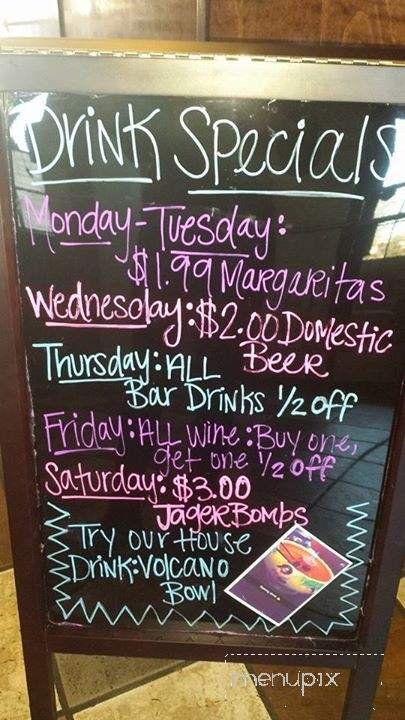 Drink Specials
Monday-Tuesday:
$1.99 Margareitas
Wednesday:$2.00 Domestic
Beer
Thursday: ALL
Bar Drinks 1/2 off
Friday: ALL wine: Buy one,
get one 1/2 off
Saturday: $3.00
JägerBombs
Try our House
Drink: Volcano
Bowl
menupix